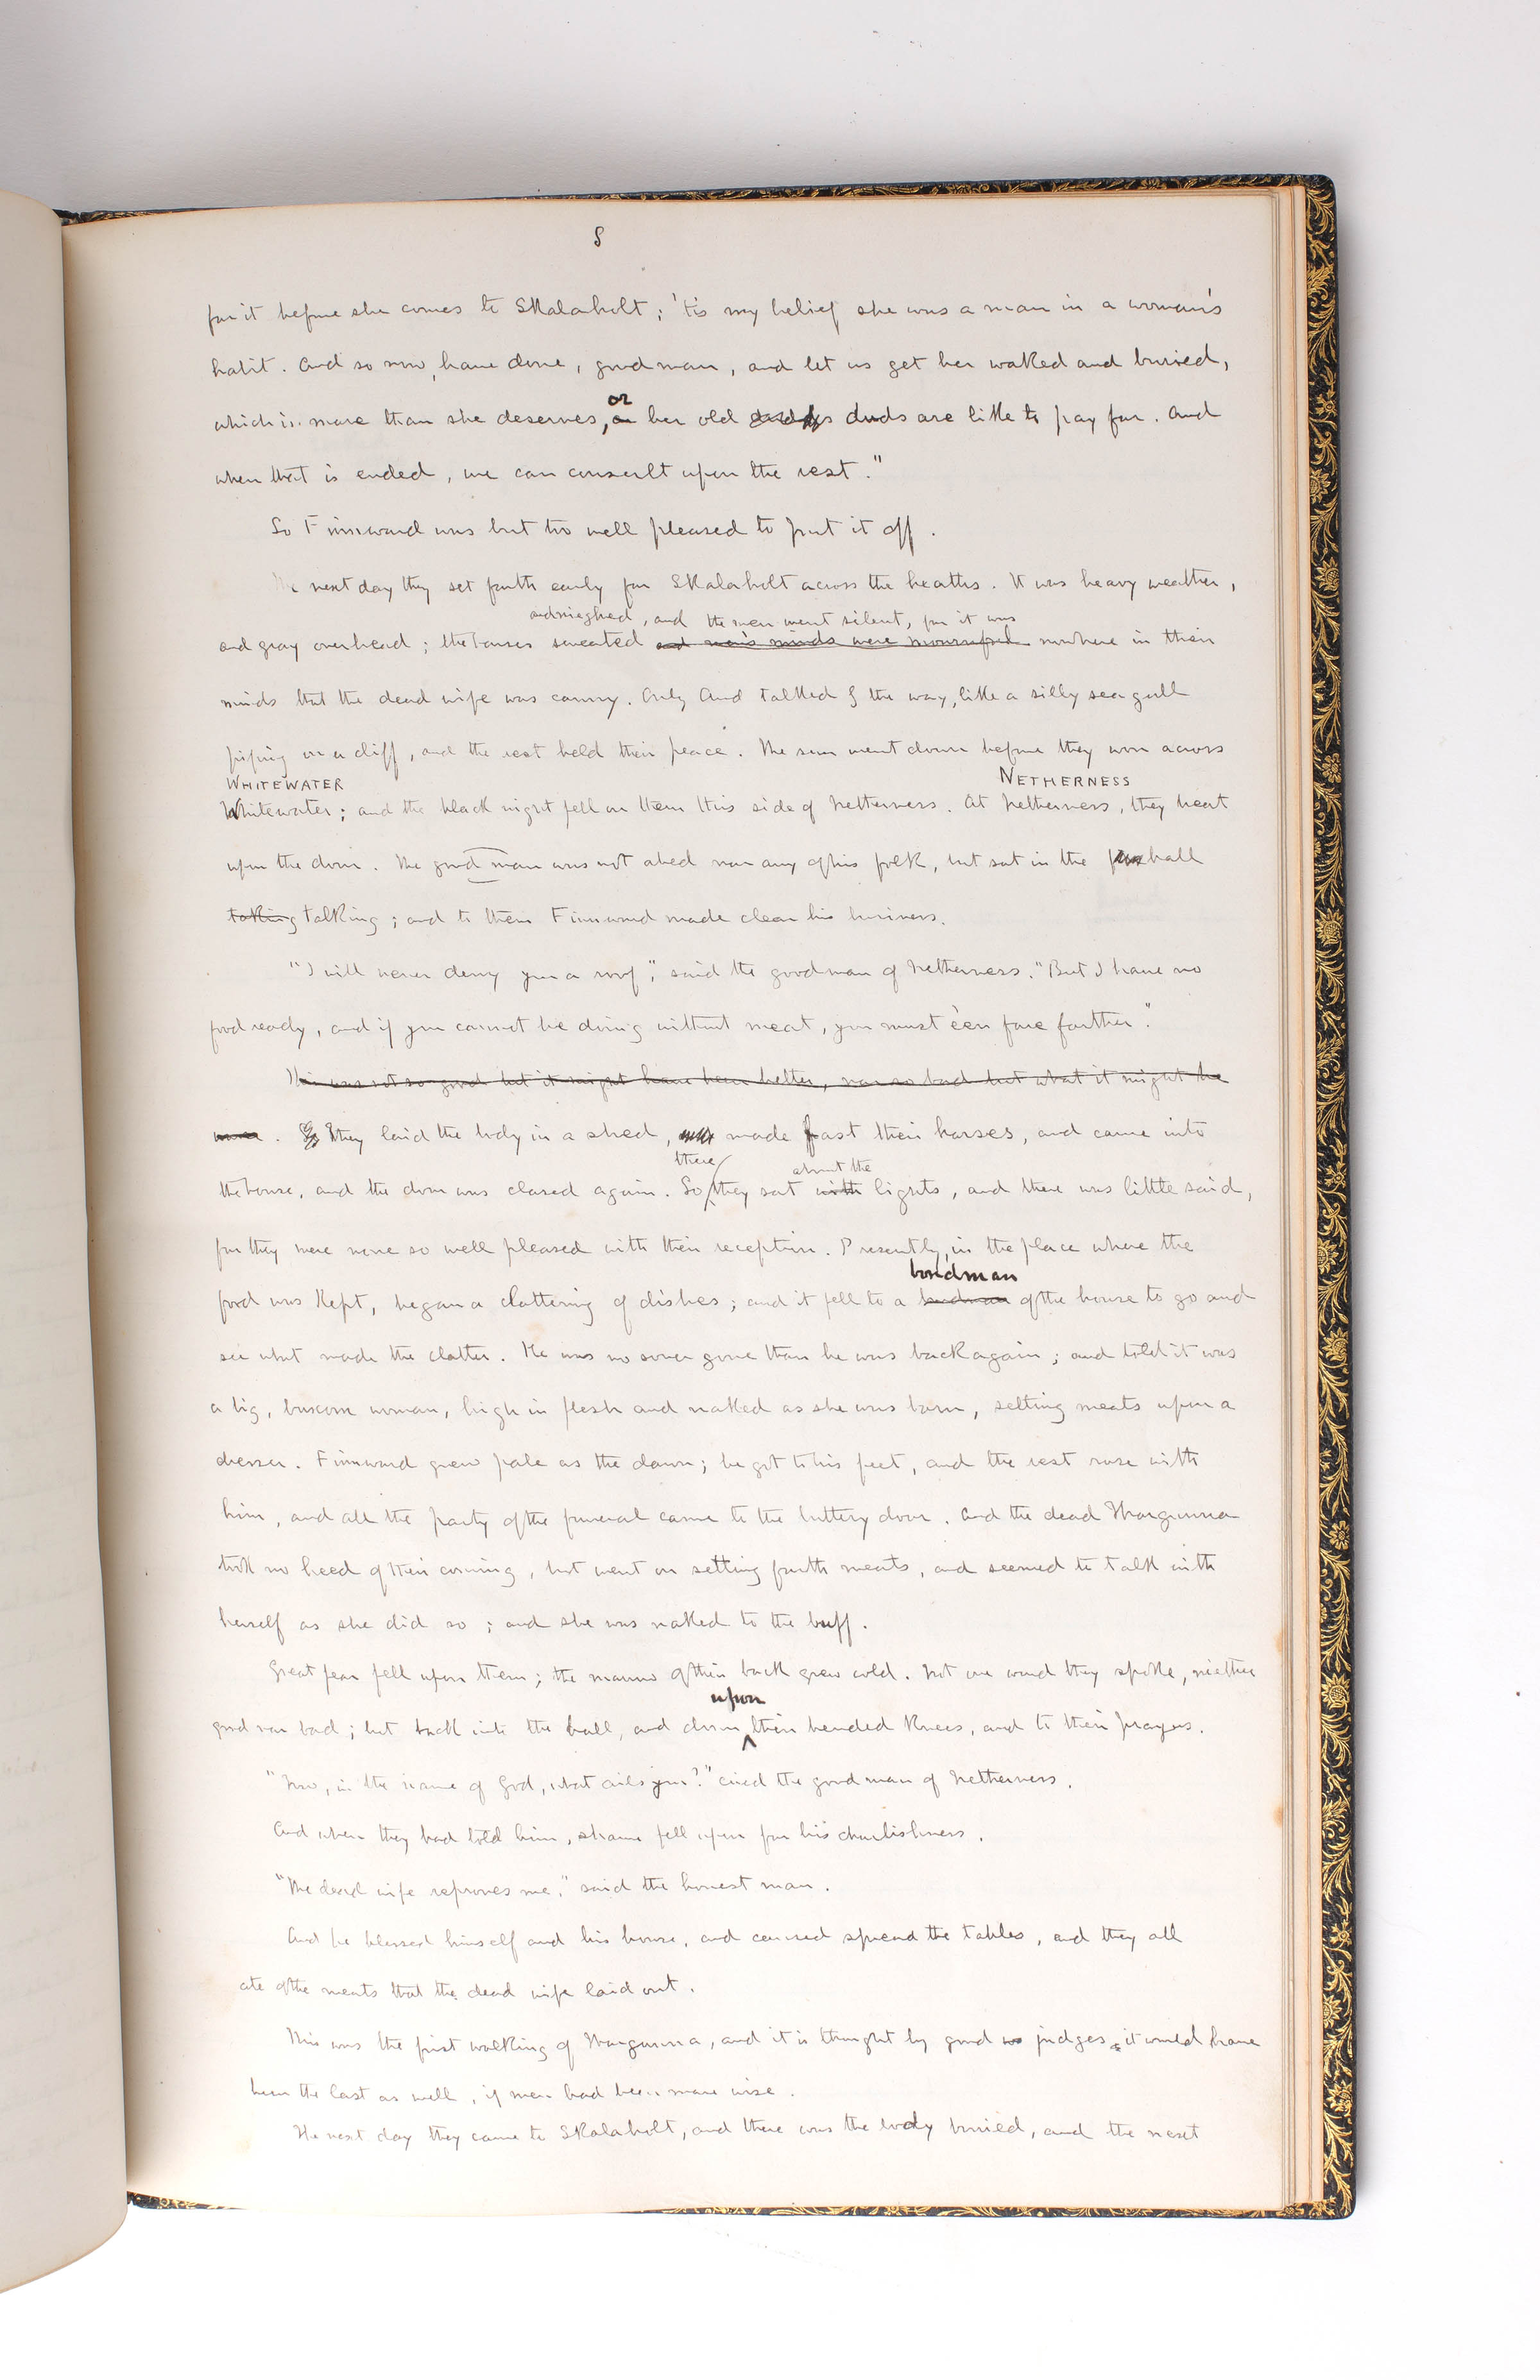 8
for it before she comes to Skalaholt; 'tis my belief she was a man in a woman's
habit. And so now, have done, good man, and let us get her waked and buried,
or
which is more than she deserves, or her old duds are like to pay for. And
when that is ended, we can consult upon the rest."
So Finnward was but too well pleased to put it off.
The next day they set forth early for Skalaholt across the heaths. It was heavy weather,
and neighed, and the men went silent, for it was
and gray overhead; the horses sweated and men's minds were mournful nowhere in their
minds that the dead wife was canny. Only Aud talked by the way, like a silly sea gull
piping on a cliff, and the rest held their peace. The sun went down before they won across
WHITEWATER NETHERNESS
Whitewater; and the black night fell on them this side of Netherness. At Netherness, they beat
upon the door. The good man was not abed nor any of his folk, but sat in the hall
talking talking; and to them Finnward made clear his business.
"I will never deny you a roof," said the goodman of Netherness. "But I have no
food ready, and if you cannot be doing without meat, you must e'en fare farther."
This was not so good but it might have been better, nor so bad but what it might be
worse. So They laid the body in a shed, made fast their horses, and came into
there about the
the house, and the door was closed again. So they sat with lights, and there was little said,
for they were none so well pleased with their reception. Presently, in the place where the
bondman
food was kept, began a clattering of dishes; and it fell to a bondman of the house to go and
see what made the clatter. He was no sooner gone than he was back again; and told it was
a big, buxom woman, high in flesh and naked as she was born, setting meats upon a
dresser. Finnward grew pale as the dawn; he got to his feet, and the rest rose with
him, and all the party of the funeral came to the buttery door. And the dead Thorgunna
took no heed of their coming, but went on setting forth meats, and seemed to talk with
herself as she did so; and she was naked to the buff.
Great fear fell upon them; the marrow of their back grew cold. Not one word they spoke, neither
upon
good nor bad; but back into the hall, and down their bended knees, and to their prayers.
"Now, in the name of God, what ails you?" cried the good man of Netherness.
And when they had told him, shame fell upon for his churlishness.
"The dead wife reproves me," said the honest man.
And he blessed himself and his house, and caused spread the tables, and they all
ate of the meats that the dead wife laid out.
This was the first walking of Thorgunna, and it is thought by good judges it would have
been the last as well, if men had been more wise.
The next day they came to Skalaholt, and there was the body buried, and the next